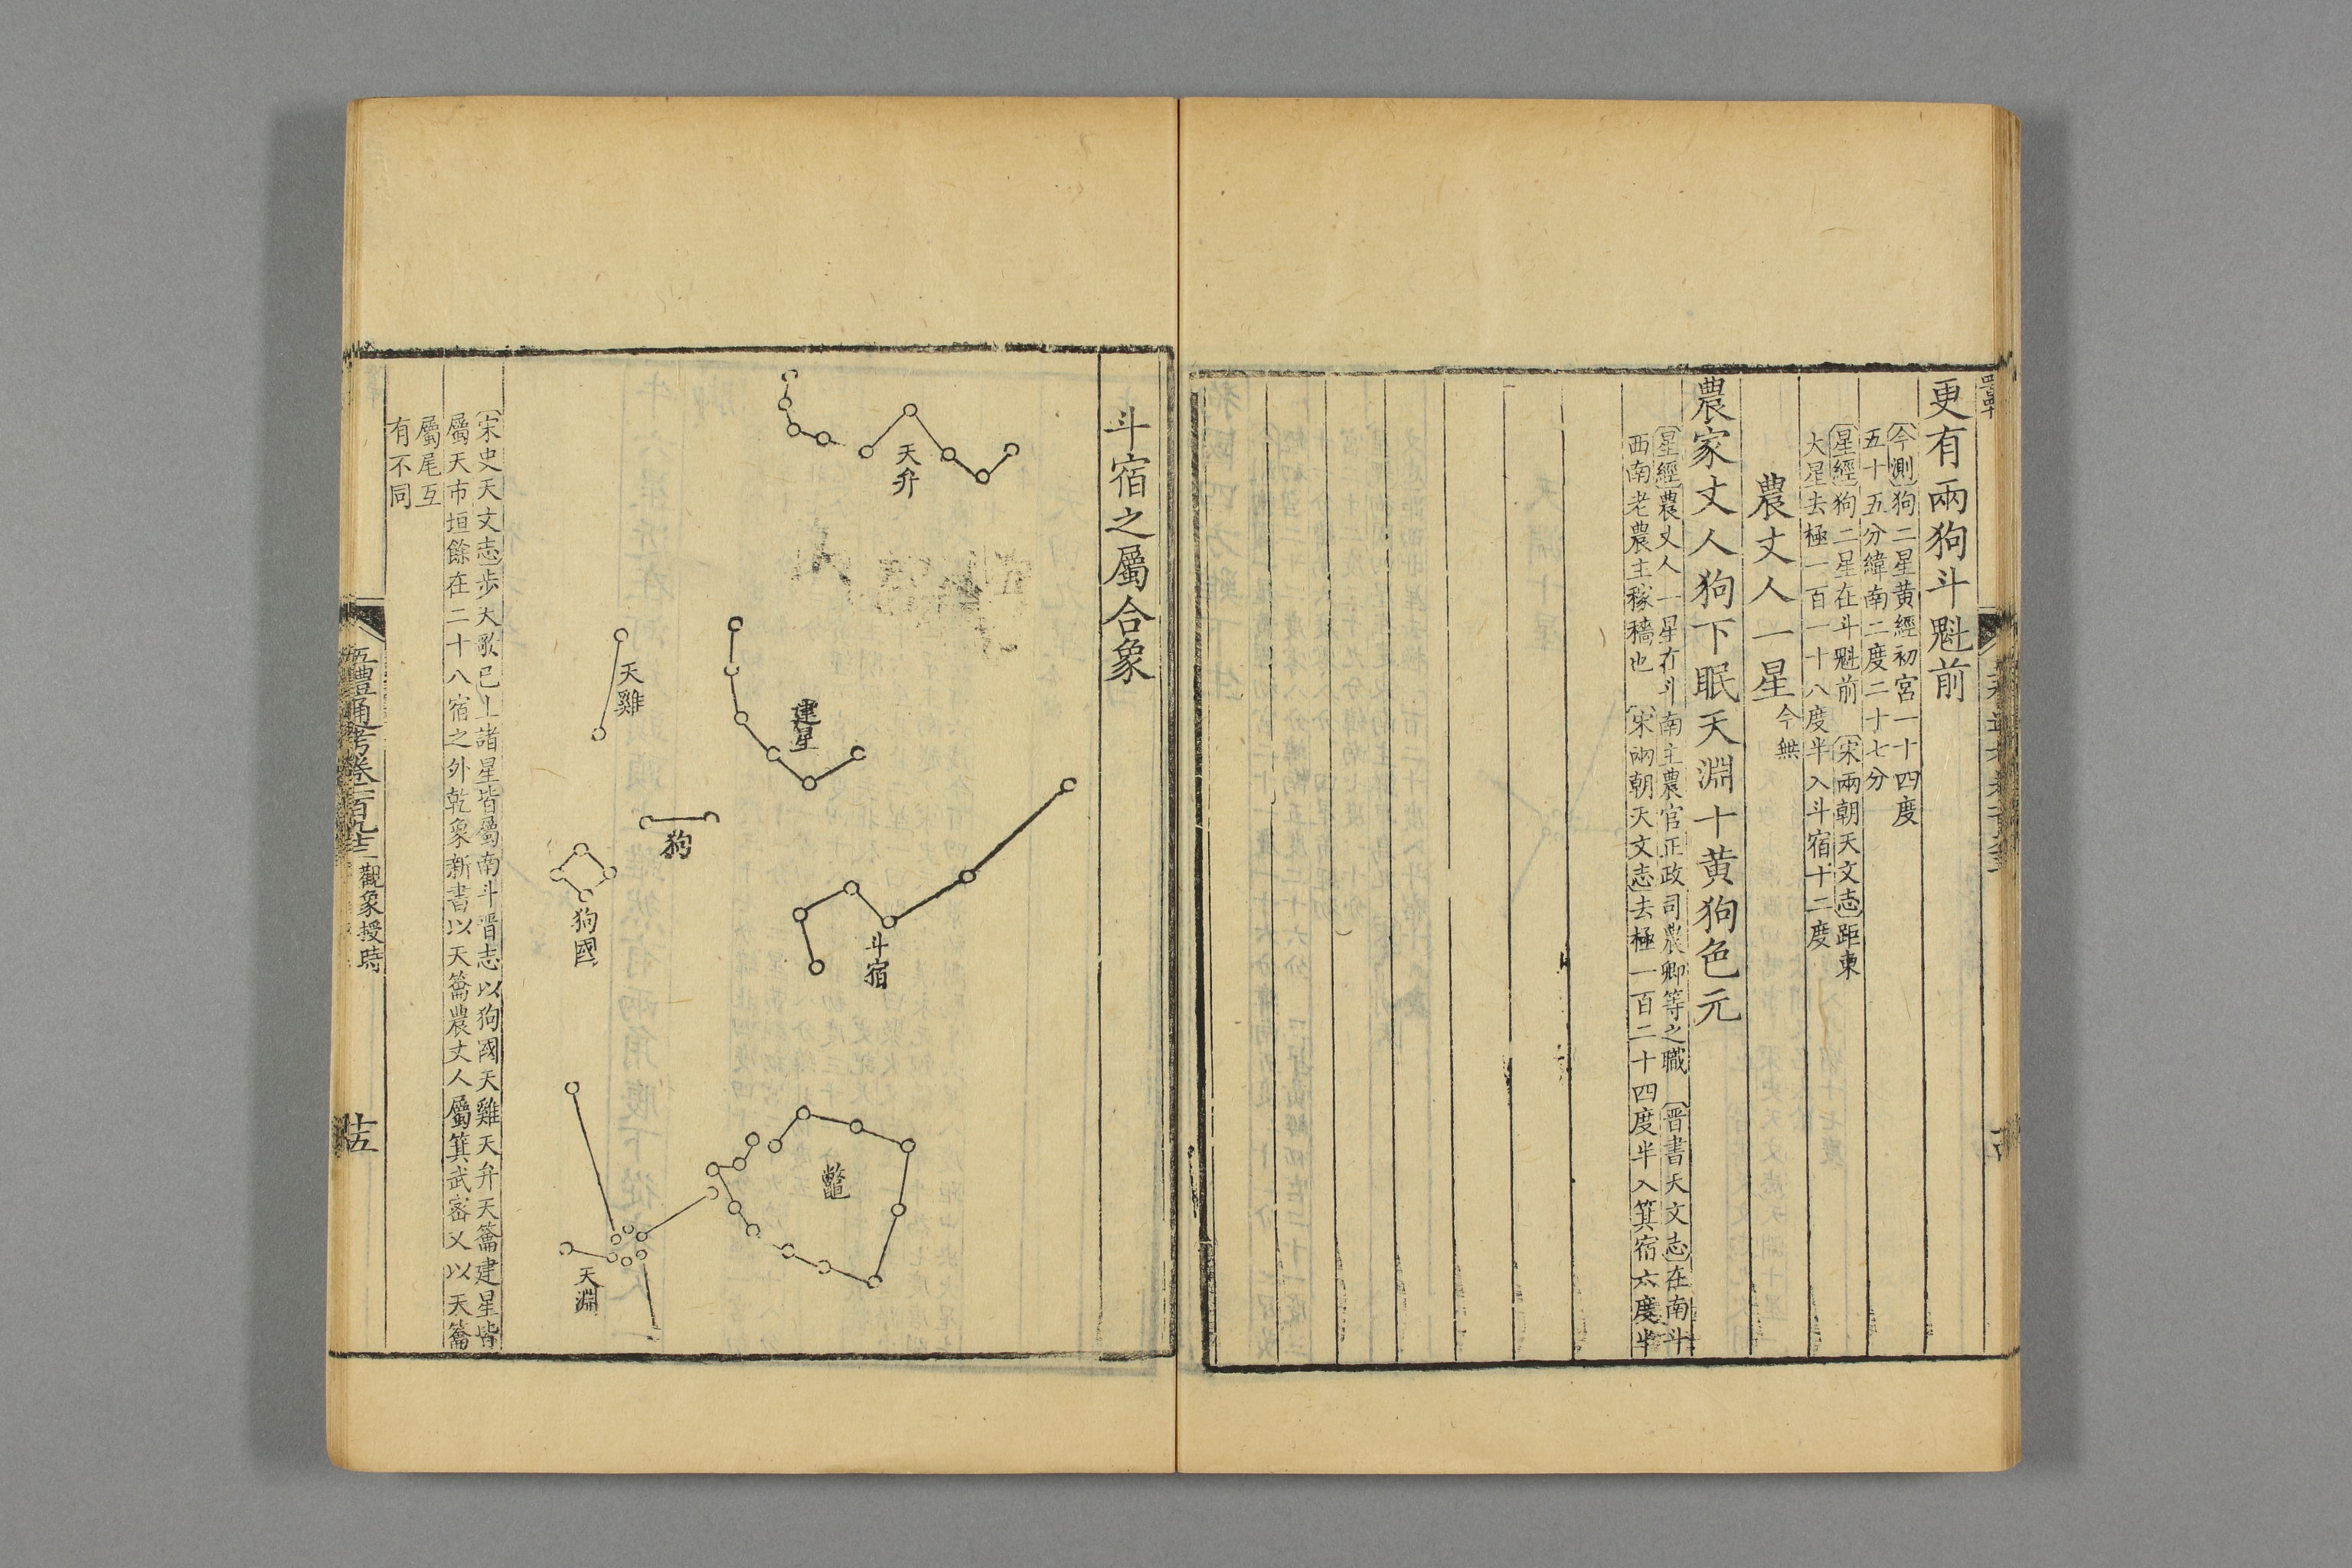 更有兩狗斗魁前
今測狗二星黃經初宮一十四度
五十五分緯南二度二十七分
星經狗二星在斗魁前 宋兩朝天文志距東
大星去極一百一十八度半入斗宿十二度
農丈人一星今無
農家丈人狗下眠天淵十黄狗色元
星經農丈人一星在斗南主農官正政司農卿等之職 晋書天文志在南斗
西南老農主稼穡也 宋兩朝天文志去極一百二十四度半入箕宿六度半
斗宿之屬合象
天弁
建星
斗宿
鼈
天雞
狗
狗國
天淵
宋史天文志步天歌已上諸星皆屬南斗晋志以狗國天雞天弁天籥建星皆
屬天市垣餘在二十八宿之外乾象新書以天籥農丈人屬箕武密又以天籥
屬尾互
有不同
五禮通考卷一百九十三 觀象授時
十五